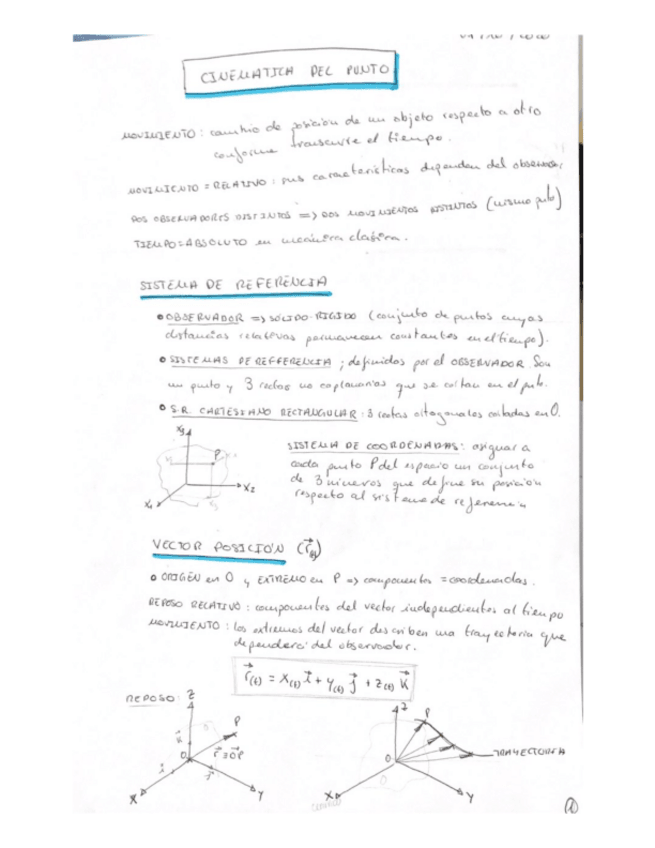 CINEMATICA DEL PUNTO
MOVIMIENTO: cambio de posición de un objeto respecto a otro
conforme transcurre el tiempo.
MOVIMIENTO = RELATIVO: sus características dependen del observador
DOS OBSERVADORES DISTINTOS => DOS MOVIMIENTOS DISTINTOS (mismo pto)
TIEMPO = ABSOLUTO en mecánica clásica.
SISTEMA DE REFERENCIA
• OBSERVADOR => SÓLIDO-RÍGIDO (conjunto de puntos cuyas
distancias relativas permanecen constantes en el tiempo).
• SISTEMAS DE REFERENCIA; definidos por el OBSERVADOR. Son
un punto y 3 rectas no coplanarias que se cortan en el pto.
• S.R. CARTESIANO RECTANGULAR: 3 rectas ortogonales cortadas en O.
X3
P
X2
X1
SISTEMA DE COORDENADAS: asignar a
cada punto P del espacio un conjunto
de 3 números que define su posición
respecto al sistema de referencia
VECTOR POSICIÓN (r⃗(t))
• ORIGEN en O y EXTREMO en P => componentes = coordenadas.
REPOSO RELATIVO: componentes del vector independientes al tiempo
MOVIMIENTO: los extremos del vector describen una trayectoria que
dependerá del observador.
r⃗(t) = x(t) i⃗ + y(t) j⃗ + z(t) k⃗
REPOSO:
Z
P
k⃗
O
r⃗ ≡ O⃗P
i⃗
j⃗
X
Y
Z
P
O
TRAYECTORIA
X
Y
1